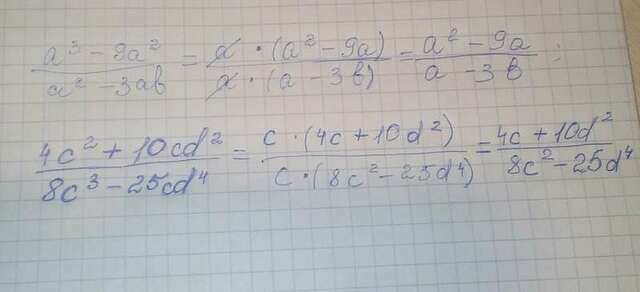 (a³ - 9a²)/(a² - 3ab) = (a · (a² - 9a))/(a · (a - 3b)) = (a² - 9a)/(a - 3b) ;
(4c² + 10cd²)/(8c³ - 25cd⁴) = (c · (4c + 10d²))/(c · (8c² - 25d⁴)) = (4c + 10d²)/(8c² - 25d⁴)